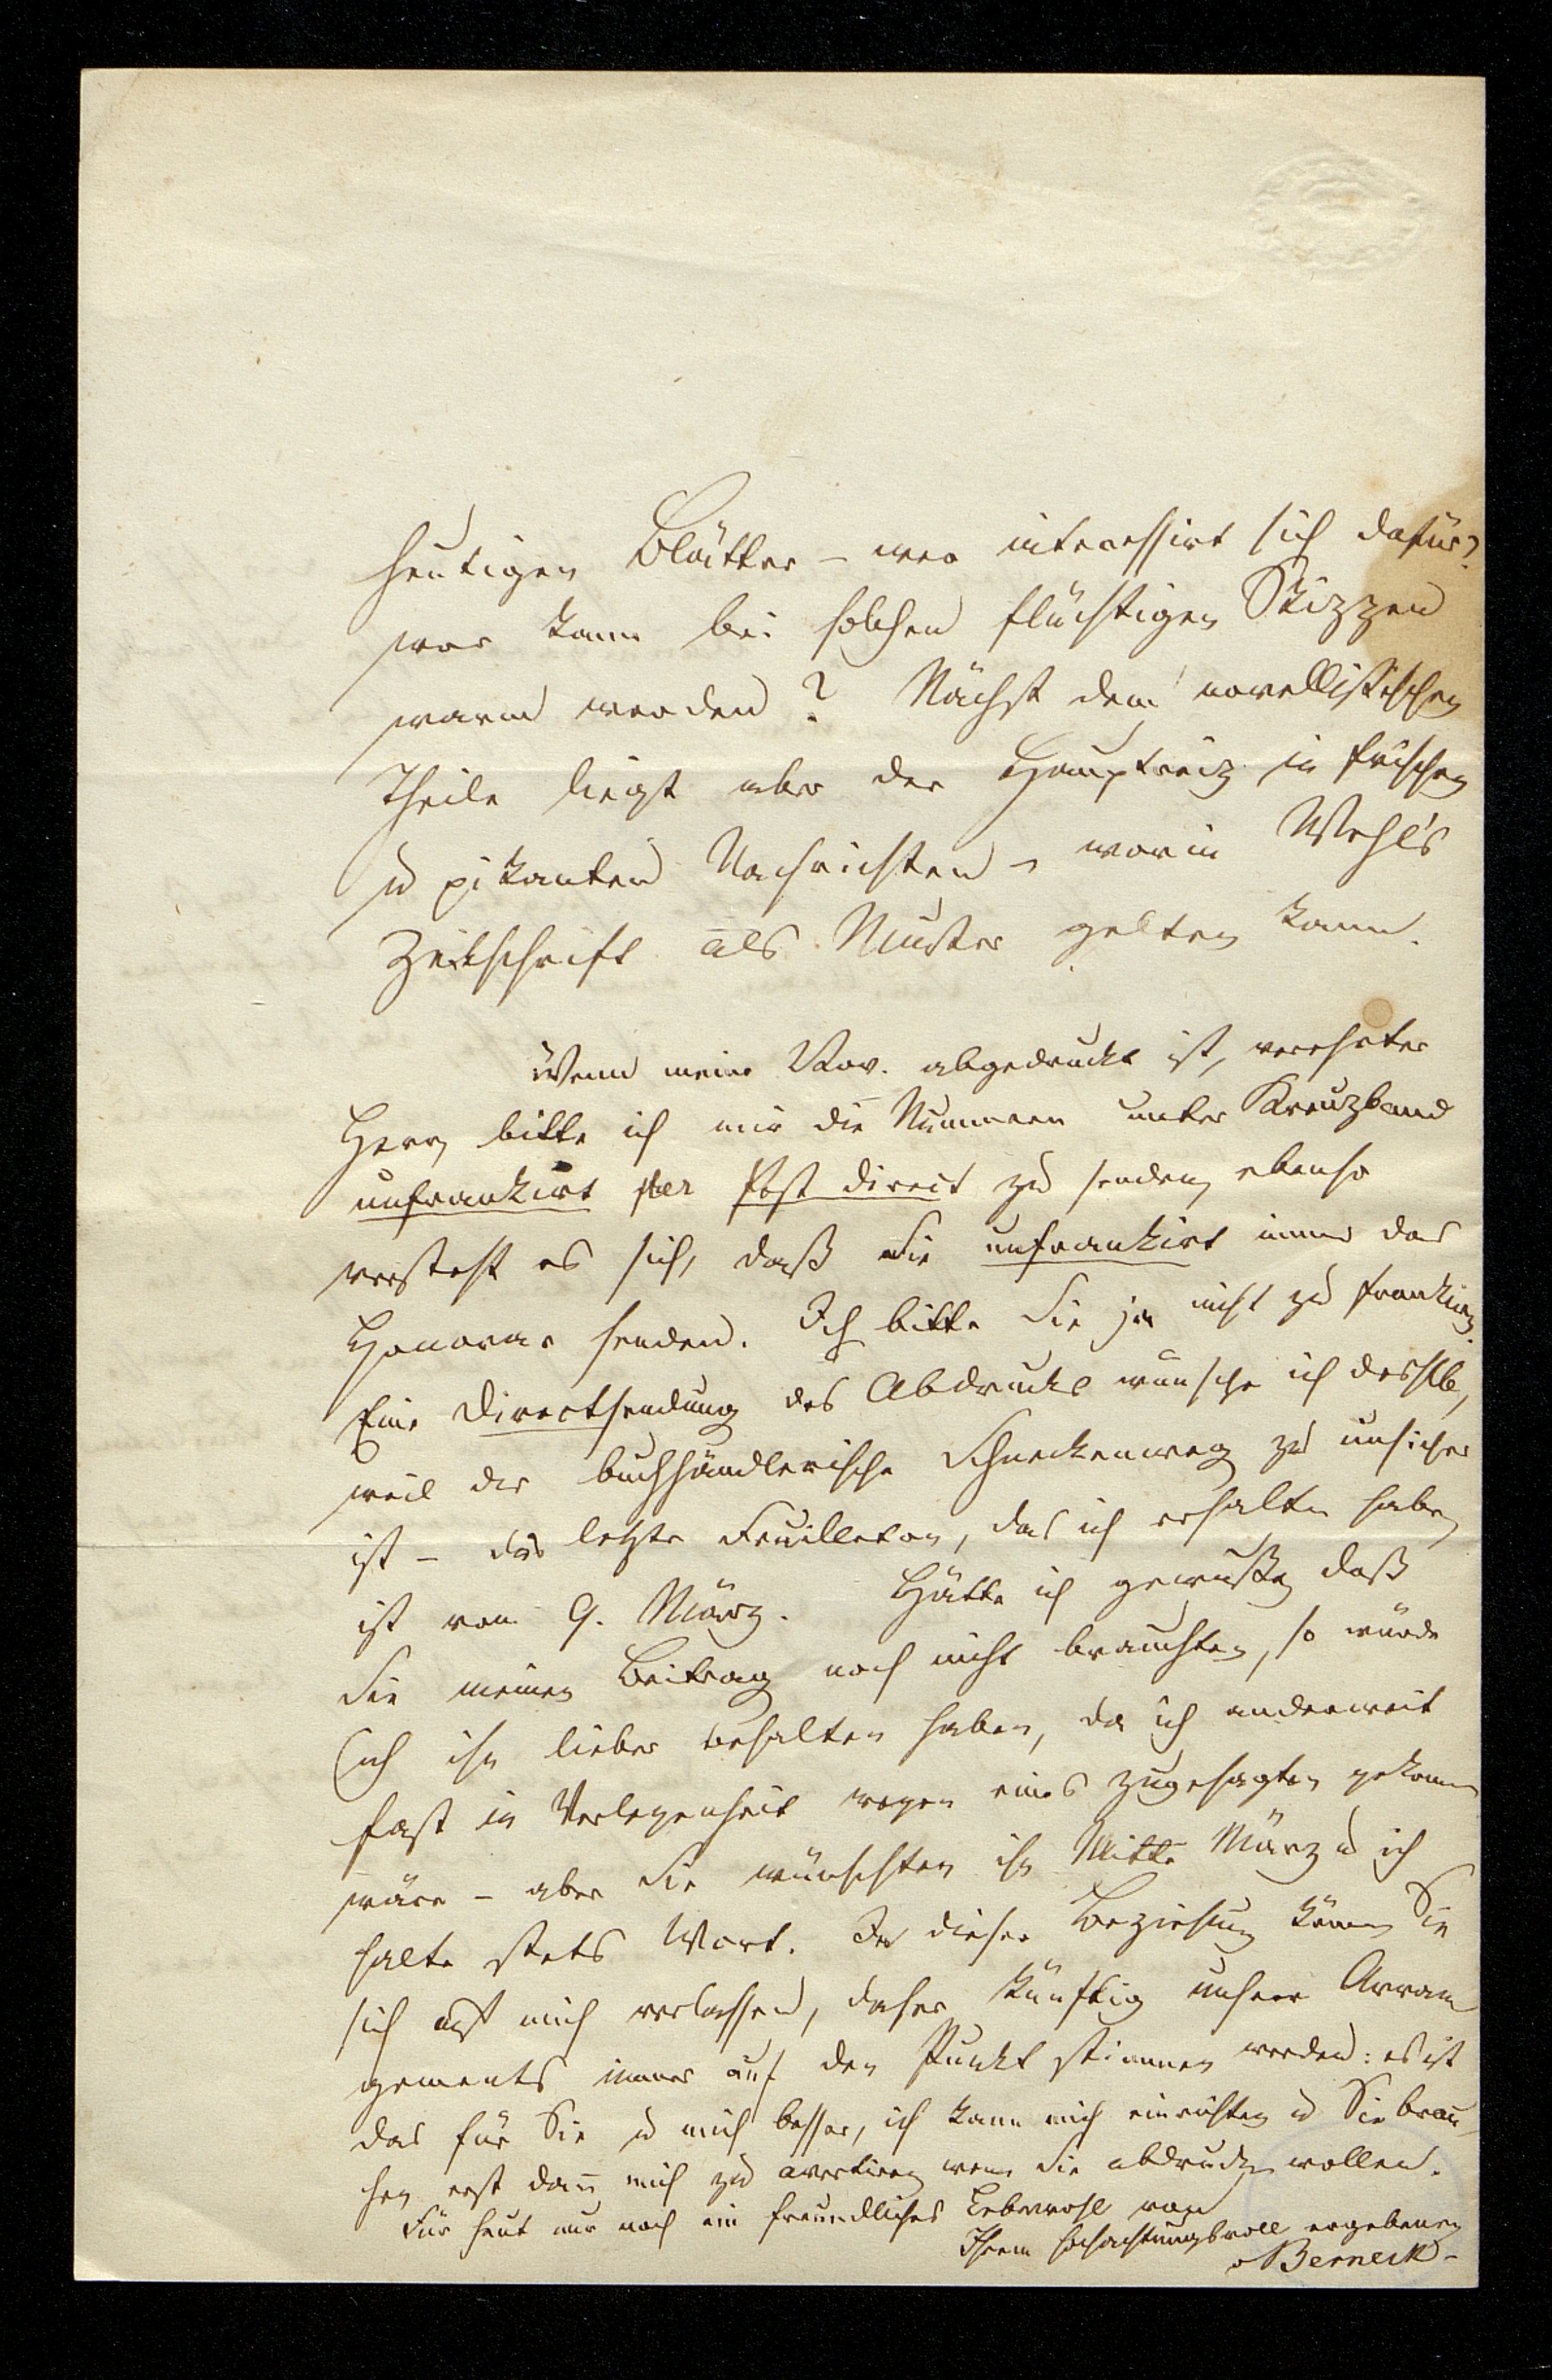 heutigen Blätter – wer interessirt sich dafür?
wer kann bei solchen flüchtigen Skizzen
warm werden? Nächst dem novellistischen
Theile liegt aber der Hauptreiz in frischen
u pikanten Nachrichten – worin Wehl's
Zeitschrift als Muster gelten kann.
Wenn meine Nov. abgedruckt ist, verehrter
Herr, bitte ich mir die Nummern unter Kreuzband
unfrankirt per Post direct zu senden, ebenso
versteht es sich, daß Sie unfrankirt immer das
Honorar senden. Ich bitte Sie ja nicht zu frankiren.
Eine Directsendung des Abdrucks wünsche ich deshlb,
weil der buchhändlerische Schneckenweg zu unsicher
ist – das letzte Feuilleton, das ich erhalten habe,
ist vom 9. März. Hätte ich gewußt, daß
Sie meinen Beitrag noch nicht brauchten, so würde
ich ihn lieber behalten haben, da ich anderweit
fast in Verlegenheit wegen eines zugesagten gekommen
wäre – aber Sie wünschten ihn Mitte März u ich
halte stets Wort. In dieser Beziehung können Sie
sich auf mich verlassen, daher künftig unsere Arran
gements immer auf den Punkt stimmen werden: es ist
das für Sie u mich besser, ich kann mich einrichten u Sie brau
chen erst dann mich zu avertiren wenn Sie abdrucken wollen.
Für heut nur noch ein freundliches Lebewohl von
Ihrem hochachtungsvoll ergebenen
vBerneck –